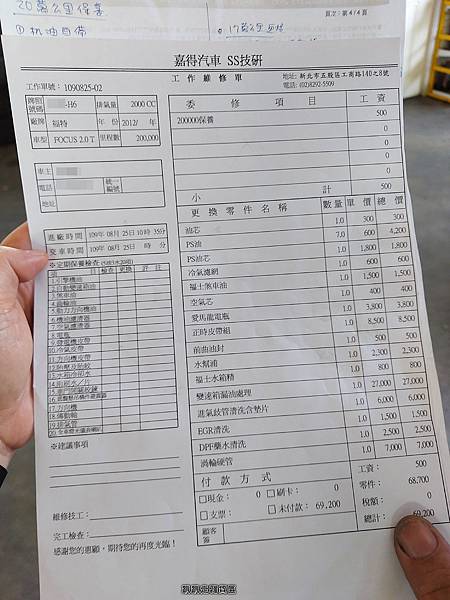 20萬公里保養
①机油自帶
頁次：第 4 / 4 頁
嘉得汽車 SS技研
工作單號： 1090825-02
工 作 維 修 單
地址: 新北市五股區工商路140之8號
電話: (02)8292-5509
牌照號碼 -H6 排氣量 2000 CC
廠牌 福特 年份 2012/ 年
車型 FOCUS 2.0 T 里程數 200,000
車主
電話 統一編號
地址
進廠時間 109年 08月 25日 10時 35分
交車時間 109年 08月 25日 時 分
委 修 項 目 工 資
200000保養 500
0
0
0
小 計 500
更 換 零 件 名 稱 數量 單 價 總 價
油芯 1.0 300 300
PS油 7.0 600 4,200
PS油芯 1.0 1,800 1,800
冷氣濾網 1.0 600 600
福士煞車油 1.0 1,500 1,500
空氣芯 1.0 400 400
愛馬龍電瓶 1.0 3,800 3,800
正時皮帶組 1.0 8,500 8,500
前曲油封 1.0 500 500
水幫浦 1.0 2,300 2,300
福士水箱精 1.0 800 800
變速箱漏油處理 1.0 27,000 27,000
進氣歧管清洗含墊片 1.0 6,000 6,000
EGR清洗 1.0 1,500 1,500
DPF藥水清洗 1.0 2,500 2,500
渦輪硬管 1.0 7,000 7,000
付 款 方 式
□現金： 0 □刷卡： 0
□支票： □未付款： 69,200
顧客簽
工資： 500
零件： 68,700
稅額： 0
總計： 69,200
※定期保養檢查
項 目 檢查 更換 評 註
1.引擎機油
2.自動變速箱油
3.煞車油
4.齒輪油
5.動力方向機油
6.機油濾清器
7.空氣濾清器
8.電瓶
9.發電機皮帶
10.冷氣皮帶
11.方向機皮帶
17.方向機
18.傳動軸
19.排氣管
※建議事項
維修技工：
完工檢查：
感謝您的惠顧，期待您的再度光臨！